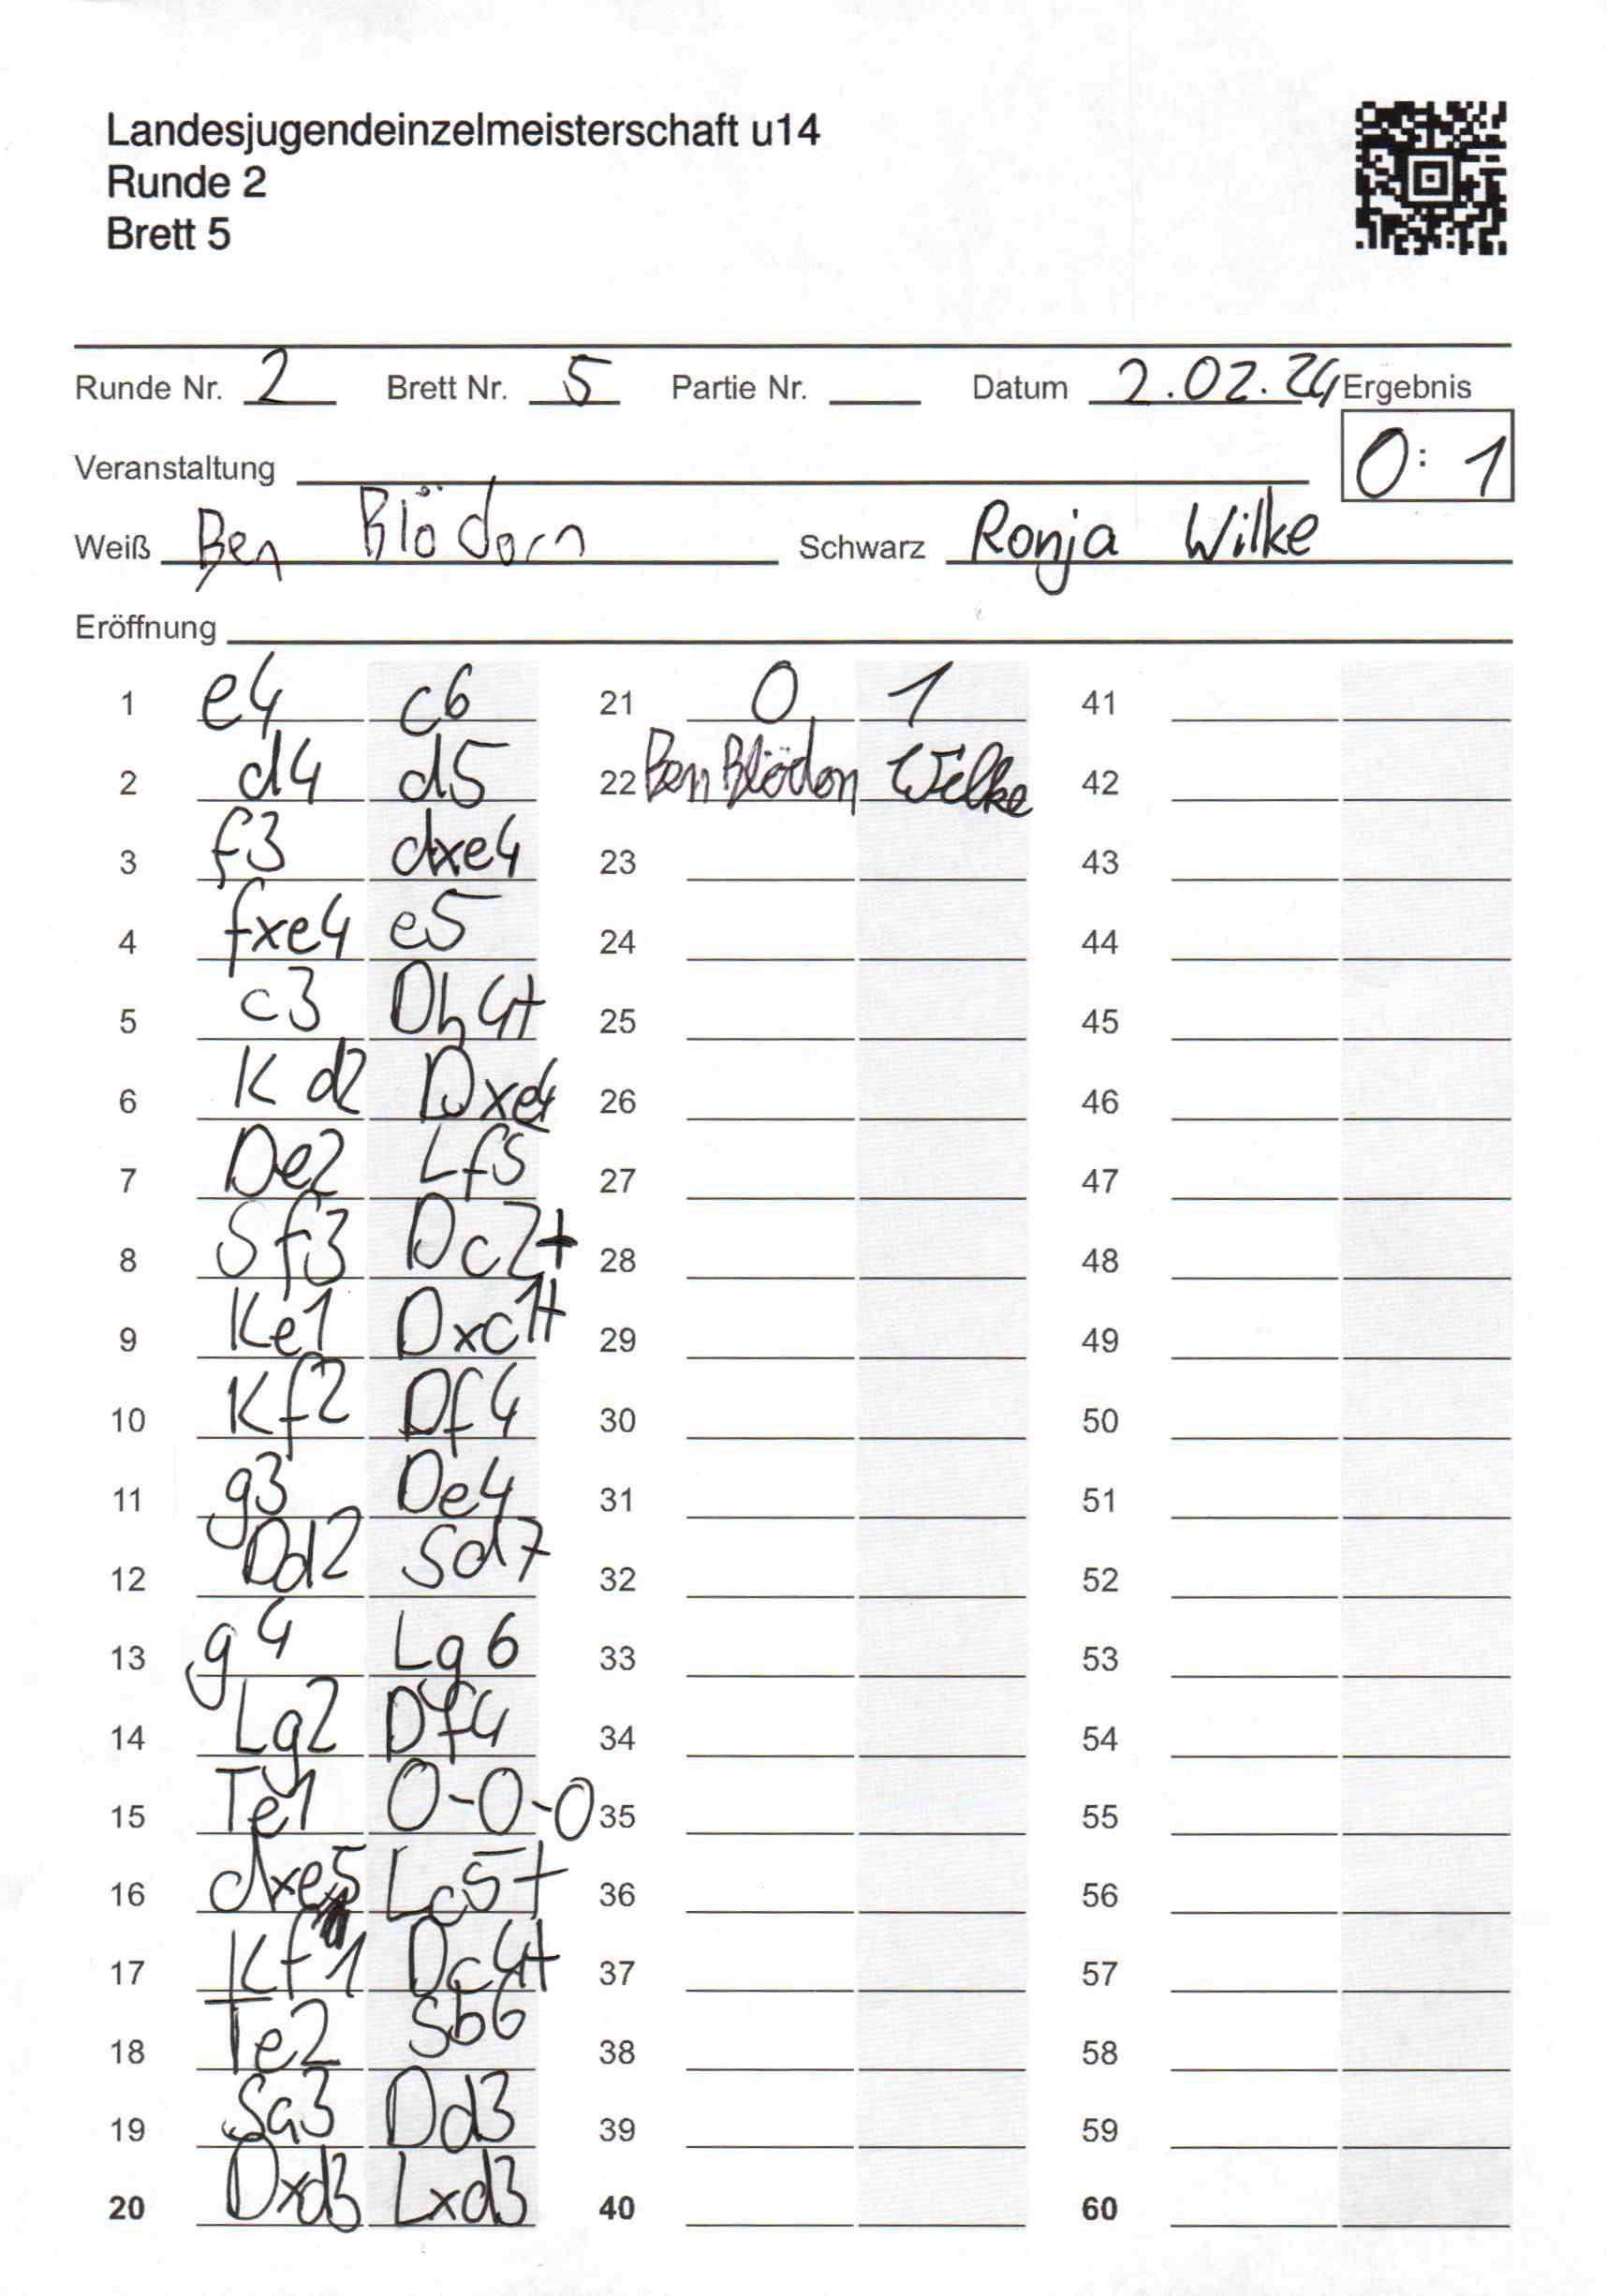 Landesjugendeinzelmeisterschaft u14
Runde 2
Brett 5
Runde Nr. 2 Brett Nr. 5 Partie Nr. Datum 2.02.24 Ergebnis
0:1
Veranstaltung
Weiß Ben Blödorn Schwarz Ronja Wilke
Eröffnung
1 e4 c6 21 0 1 41
2 d4 d5 22 Ben Blödorn Wilke 42
3 f3 dxe4 23 43
4 fxe4 e5 24 44
5 c3 Dh4+ 25 45
6 Kd2 Dxe4 26 46
7 De2 Lf5 27 47
8 Sf3 Dc2+ 28 48
9 Ke1 Dxc1+ 29 49
10 Kf2 Df4 30 50
11 g3 De4 31 51
12 Dd2 Sd7 32 52
13 g4 Lg6 33 53
14 Lg2 Df4 34 54
15 Te1 0-0-0 35 55
16 dxe5 Lc5+ 36 56
17 Kf1 Dc4+ 37 57
18 Te2 Sb6 38 58
19 Sa3 Dd3 39 59
20 Dxd3 Lxd3 40 60